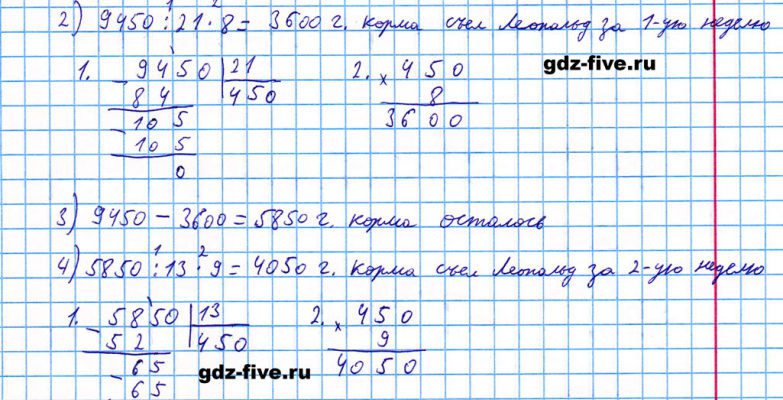 2) 9450 : 21 · 8 = 3600 г. корма съел Леопольд за 1-ую неделю
1. 9450 |21 2. 450
84 450 × 8
105 3600
105
0
gdz-five.ru
3) 9450 – 3600 = 5850 г. корма осталось
4) 5850 : 13 · 9 = 4050 г. корма съел Леопольд за 2-ую неделю
1. 5850 |13 2. 450
52 450 × 9
65 4050
65
gdz-five.ru